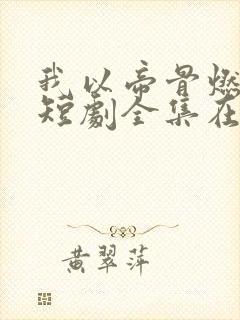 我以帝骨燃
短剧全集在
黄翠萍